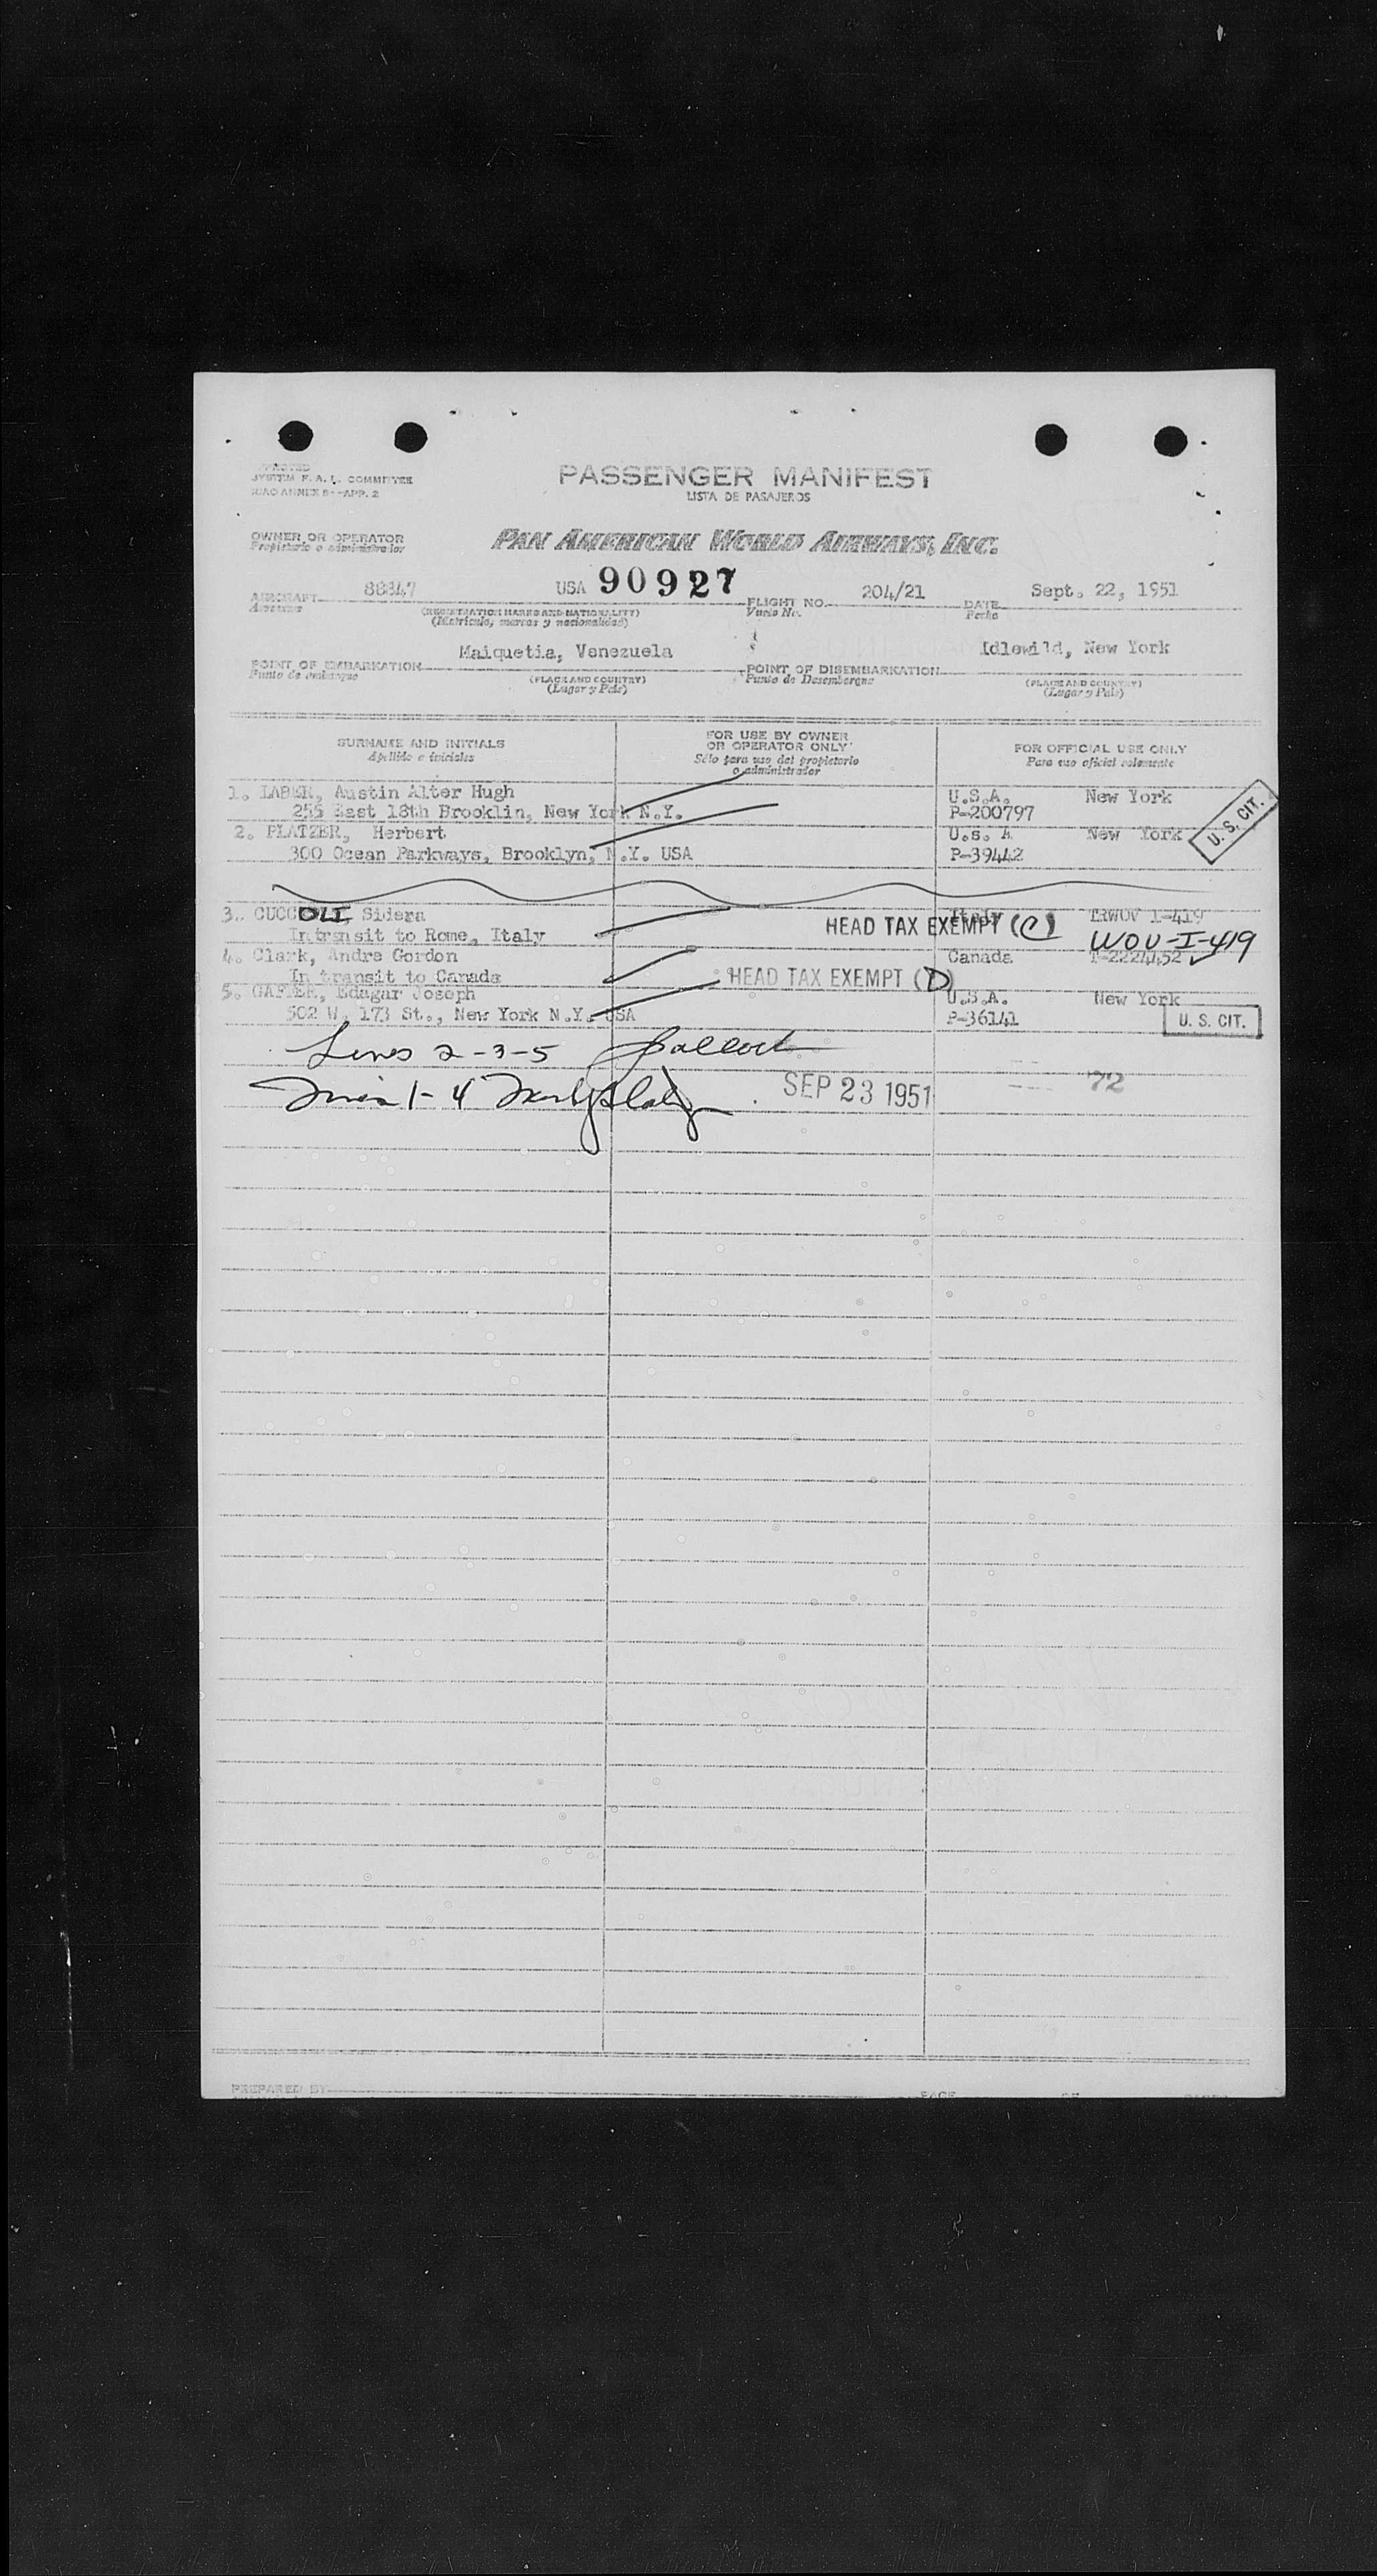 SYSTEM F. A. L. COMMITTEE
ICAO ANNEX 9--APP. 2
PASSENGER MANIFEST
LISTA DE PASAJEROS
OWNER OR OPERATOR
Propietario o administrador
PAN AMERICAN WORLD AIRWAYS, INC.
AIRCRAFT 88847 USA 90927 FLIGHT NO. 204/21 DATE Sept. 22, 1951
Aeronave (REGISTRATION MARKS AND NATIONALITY) Vuelo No. Fecha
(Matrícula, marcas y nacionalidad)
POINT OF EMBARKATION Maiquetia, Venezuela POINT OF DISEMBARKATION Idlewild, New York
Punto de embarque (PLACE AND COUNTRY) Punto de Desembarque (PLACE AND COUNTRY)
(Lugar y País) (Lugar y País)
SURNAME AND INITIALS FOR USE BY OWNER OR OPERATOR ONLY FOR OFFICIAL USE ONLY
Apellido e iniciales Sólo para uso del propietario o administrador Para uso oficial solamente
1. LABER, Austin Alter Hugh U.S.A. New York
255 East 18th Brooklin, New York N.Y. P-200797
U. S. CIT.
2. PLATZER, Herbert U.s. A New York
300 Ocean Parkways, Brooklyn, N.Y. USA P-39442
3. CUCCOLI, Sidera HEAD TAX EXEMPT (C) Italy TRWOV I-419
In transit to Rome, Italy WOV-I-419
4. Clark, Andre Gordon Canada T-2224452
In transit to Canada HEAD TAX EXEMPT (D)
5. Edagar Joseph U.S.A. New York
502 W. 173 St., New York N.Y. USA P-36141 U. S. CIT.
Lines 2-3-5
1-4 SEP 23 1951 72
PREPARED BY PAGE OF